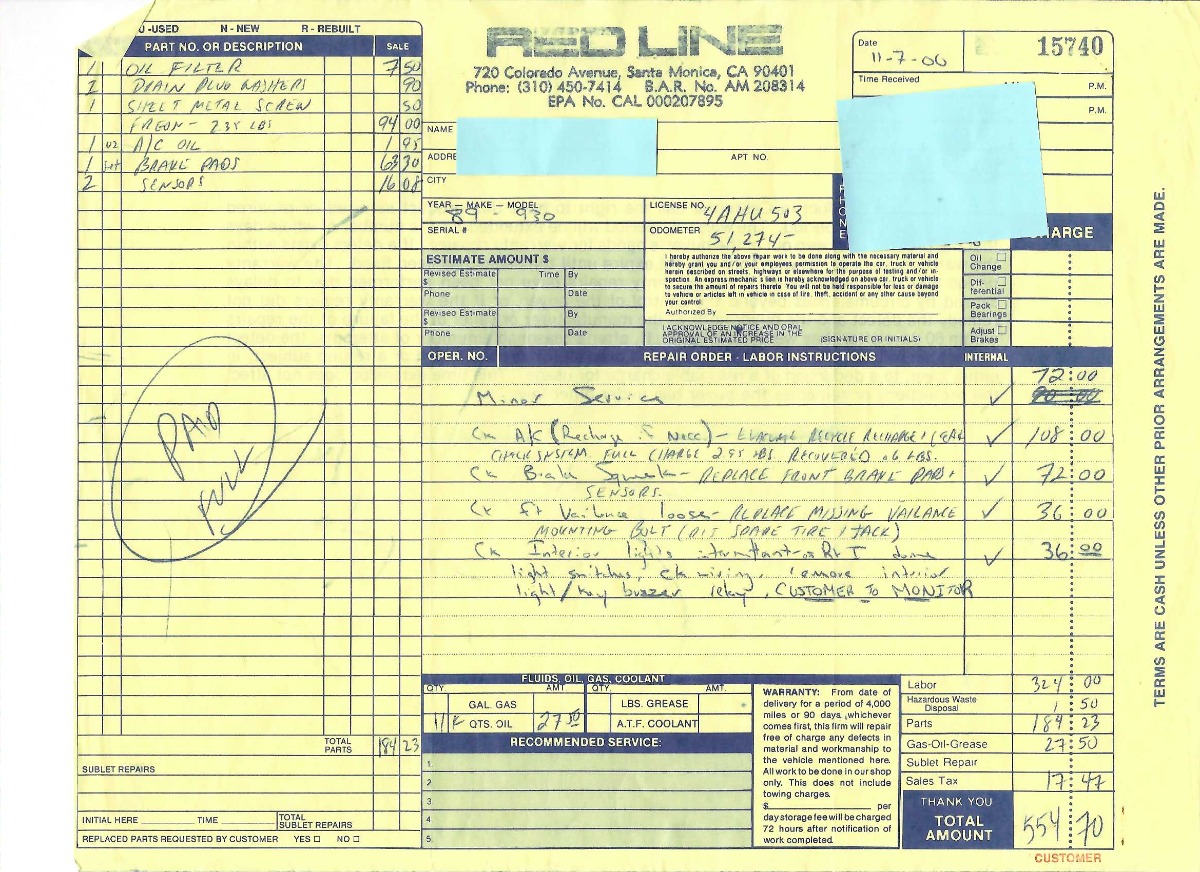 U-USED N - NEW R - REBUILT
PART NO. OR DESCRIPTION SALE
1 OIL FILTER 7 50
2 DRAIN PLUG WASHERS 90
1 SHEET METAL SCREW 50
FREON - 2.35 LBS 94 00
1 OZ A/C OIL 1 95
1 BRAKE PADS 63 30
2 SENSORS 16 08
PAID
FULL
TOTAL PARTS 184 23
SUBLET REPAIRS
INITIAL HERE TIME TOTAL SUBLET REPAIRS
REPLACED PARTS REQUESTED BY CUSTOMER YES NO
RED LINE
720 Colorado Avenue, Santa Monica, CA 90401
Phone: (310) 450-7414 B.A.R. No. AM 208314
EPA No. CAL 000207895
Date 11-7-06
15740
Time Received P.M.
P.M.
NAME
ADDRE
APT NO.
CITY
PHONE
YEAR — MAKE — MODEL
89 - 930
LICENSE NO. 4AHU503
SERIAL #
ODOMETER 51,274-
CHARGE
ESTIMATE AMOUNT $
Revised Estimate $ Time By
Phone Date
Revised Estimate $ By
Phone Date
I hereby authorize the above repair work to be done along with the necessary material and
hereby grant you and/or your employees permission to operate the car, truck or vehicle
herein described on streets, highways or elsewhere for the purpose of testing and/or in-
spection. An express mechanic's lien is hereby acknowledged on above car, truck or vehicle
to secure the amount of repairs thereto. You will not be held responsible for loss or damage
to vehicle or articles left in vehicle in case of fire, theft, accident or any other cause beyond
your control.
Authorized By
I ACKNOWLEDGE NOTICE AND ORAL
APPROVAL OF AN INCREASE IN THE
ORIGINAL ESTIMATED PRICE (SIGNATURE OR INITIALS)
Oil Change
Dif- ferential
Pack Bearings
Adjust Brakes
OPER. NO. REPAIR ORDER - LABOR INSTRUCTIONS INTERNAL
72 00
Minor Service ✓ 90 00
Ck A/C (Recharge if Necc) - RECYCLE RECHARGE ✓ 108 00
CHECK SYSTEM. FULL CHARGE 2.95 LBS RECOVERED .6 LBS.
Ck Brake Squeak - REPLACE FRONT BRAKE PADS + ✓ 72 00
SENSORS.
Ck ft Vailance loose - REPLACE MISSING VAILANCE ✓ 36 00
MOUNTING BOLT (R+S SPARE TIRE / JACK)
Ck Interior lights intermittant - R+I dome ✓ 36 00
light switches, ck wiring, remove interior
light/key buzzer relay, CUSTOMER TO MONITOR
FLUIDS, OIL, GAS, COOLANT
QTY. AMT. QTY. AMT.
GAL. GAS LBS. GREASE
11 QTS. OIL 27 50 A.T.F. COOLANT
RECOMMENDED SERVICE:
1.
2
3
4
5.
WARRANTY: From date of
delivery for a period of 4,000
miles or 90 days, whichever
comes first, this firm will repair
free of charge any defects in
material and workmanship to
the vehicle mentioned here.
All work to be done in our shop
only. This does not include
towing charges.
$ per
day storage fee will be charged
72 hours after notification of
work completed.
Labor 324 00
Hazardous Waste Disposal 1 50
Parts 184 23
Gas-Oil-Grease 27 50
Sublet Repair
Sales Tax 17 47
THANK YOU
TOTAL AMOUNT 554 70
CUSTOMER
TERMS ARE CASH UNLESS OTHER PRIOR ARRANGEMENTS ARE MADE.